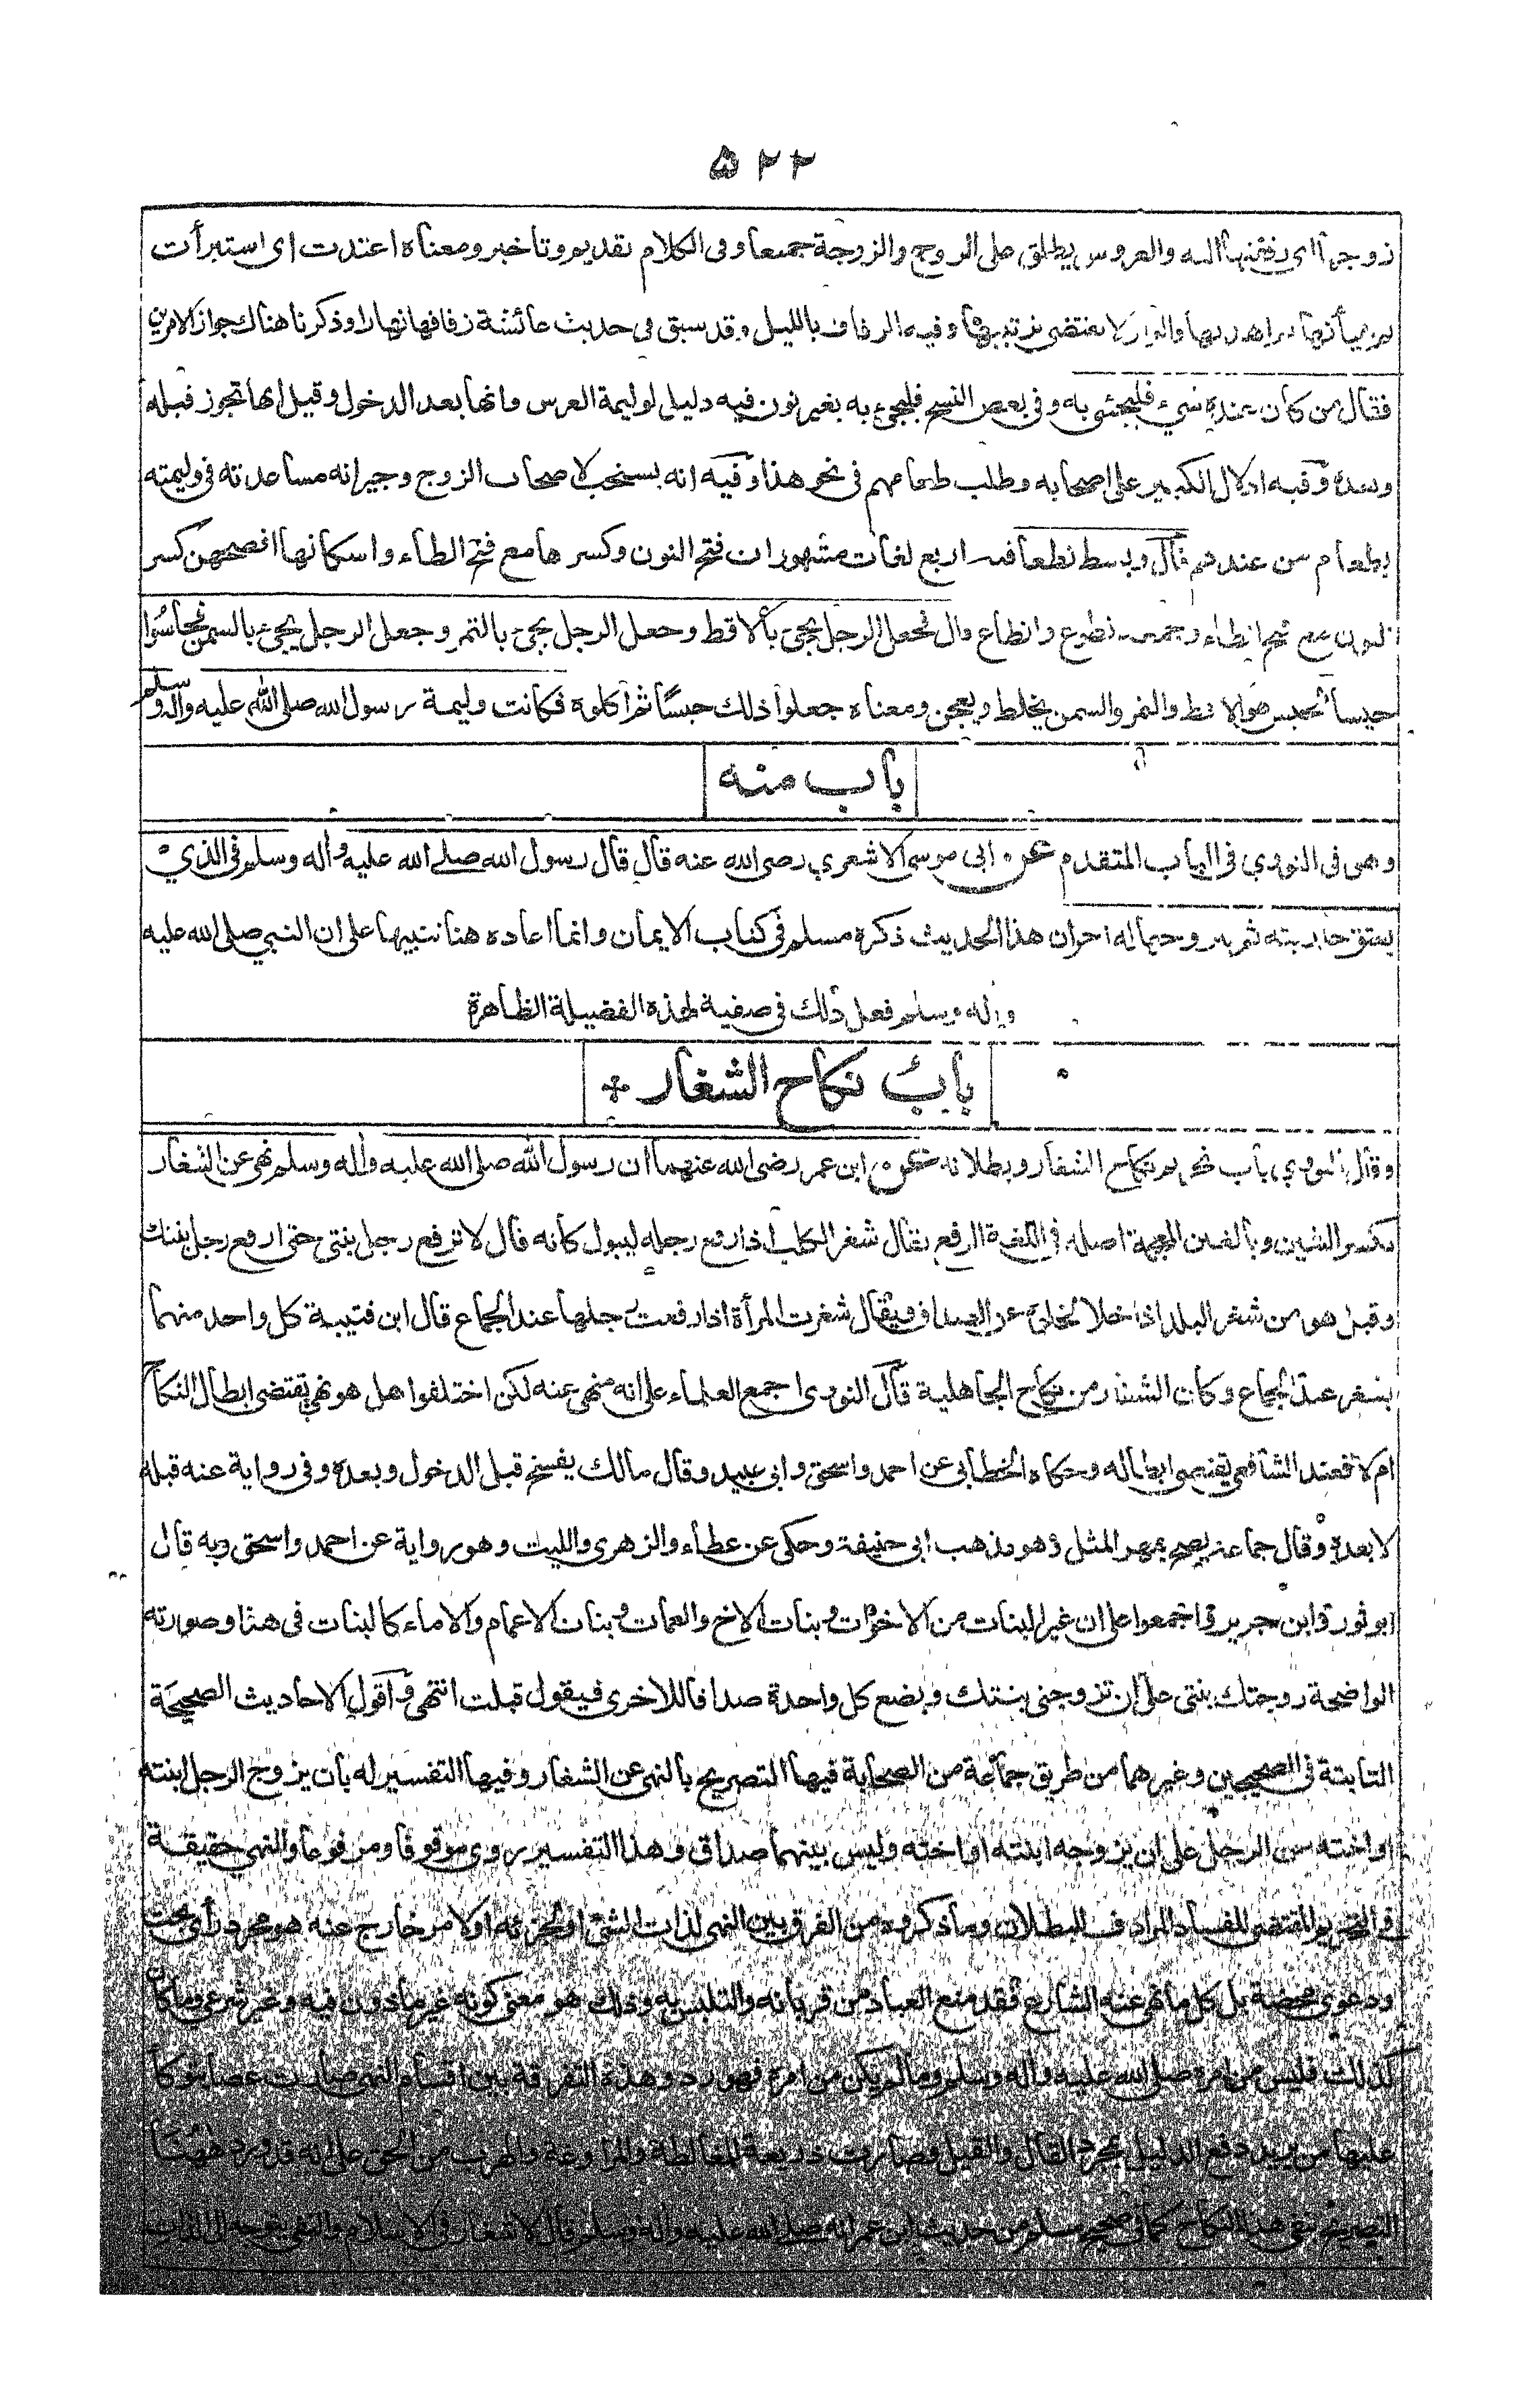 ٥٢٢
زوجها اى زفتها اليه والعروس يطلق على الزوج والزوجة جميعا وفى الكلام تقديم وتاخير ومعناه اعتدت اى استبرأت
ثم هيأتها ثم اهدتها والواو لا تقتضى ترتيبا وفيه الزفاف بالليل وقد سبق فى حديث عائشة زفافها نهارا وذكرنا هناك جواز الامرين
فقال من كان عنده شيء فليجئنى به وفى بعض النسخ فليجئ به بغير نون فيه دليل لوليمة العرس وانها بعد الدخول وقيل انها تجوز قبله
وبعده وفيه ادلال الكبير على اصحابه وطلب طعامهم فى نحو هذا وفيه انه يستحب لاصحاب الزوج وجيرانه مساعدته فى وليمته
بطعام من عندهم قال وبسط نطعا فيه اربع لغات مشهورات فتح النون وكسرها مع فتح الطاء واسكانها افصحهن كسر
النون مع فتح الطاء وجمعه نطوع وانطاع قال فجعل الرجل يجئ بالاقط وجعل الرجل يجئ بالتمر وجعل الرجل يجئ بالسمن فحاسوا
حيسا الحيس هو الاقط والتمر والسمن يخلط ويعجن ومعناه جعلوا ذلك حيسا ثم اكلوه فكانت وليمة رسول الله صلى الله عليه واله وسلم
باب منه
وهى فى النووي فى الباب المتقدم عن ابى موسى الاشعري رضى الله عنه قال قال رسول الله صلى الله عليه واله وسلم فى الذي
يعتق جاريته ثم يتزوجها له اجران هذا الحديث ذكره مسلم فى كتاب الايمان وانما اعاده هنا تنبيها على ان النبي صلى الله عليه
واله وسلم فعل ذلك فى صفية لهذه الفضيلة الظاهرة
باب نكاح الشغار
وقال النووي باب تحريم نكاح الشغار وبطلانه عن ابن عمر رضى الله عنهما ان رسول الله صلى الله عليه واله وسلم نهى عن الشغار
بكسر الشين وبالغين المعجمة اصله فى اللغة الرفع يقال شغر الكلب اذا رفع رجله ليبول كأنه قال لا ترفع رجل بنتى حتى ارفع رجل بنتك
وقيل هو من شغر البلد اذا خلا لخلوه عن الصداق ويقال شغرت المرأة اذا رفعت رجلها عند الجماع قال ابن قتيبة كل واحد منهما
يشغر عند الجماع وكان الشغار من نكاح الجاهلية قال النووى اجمع العلماء على انه منهى عنه لكن اختلفوا هل هو نهى يقتضى ابطال النكاح
ام لا فعند الشافعى يقتضى ابطاله وحكاه الخطابى عن احمد واسحق وابى عبيد وقال مالك يفسخ قبل الدخول وبعده وفى رواية عنه قبله
لا بعده وقال جماعة يصح بمهر المثل وهو مذهب ابى حنيفة وحكى عن عطاء والزهرى والليث وهو رواية عن احمد واسحق وبه قال
ابو ثور وابن جرير واجمعوا على ان غير البنات من الاخوات وبنات الاخ والعمات وبنات الاعمام والاماء كالبنات فى هذا وصورته
الواضحة زوجتك بنتى على ان تزوجنى بنتك وبضع كل واحدة صداقا للاخرى فيقول قبلت انتهى واقول الاحاديث الصحيحة
الثابتة فى الصحيحين وغيرهما من طريق جماعة من الصحابة فيها التصريح بالنهى عن الشغار وفيها التفسير له بان يزوج الرجل ابنته
او اخته من الرجل على ان يزوجه ابنته او اخته وليس بينهما صداق وهذا التفسير روى موقوفا ومرفوعا والنهى حقيقة
فى التحريم المقتضى للفساد المرادف للبطلان وما ذكروه من الفرق بين النهى لذات الشئ او لجزئه او لامر خارج عنه هو مجرد رأى بحت
ودعوى محضة بل كل ما نهى عنه الشارع فقد منع العباد من قربانه والتلبس به وذلك هو معنى كونه غير مأذون فيه وغير شرعى وما كان
كذلك فليس من امره صلى الله عليه واله وسلم وما لم يكن من امره فهو رد وهذه التفرقة بين اقسام النهى صارت عصا يتوكأ
عليها من يريد دفع الدليل بمجرد القال والقيل وصارت ذريعة للمغالطة والمراوغة والهرب من الحق على انه قد ورد ههنا
التصريح بنفى هذا النكاح كما فى صحيح مسلم من حديث ابن عمر انه صلى الله عليه واله وسلم قال لا شغار فى الاسلام والنفى يتوجه الى الذات